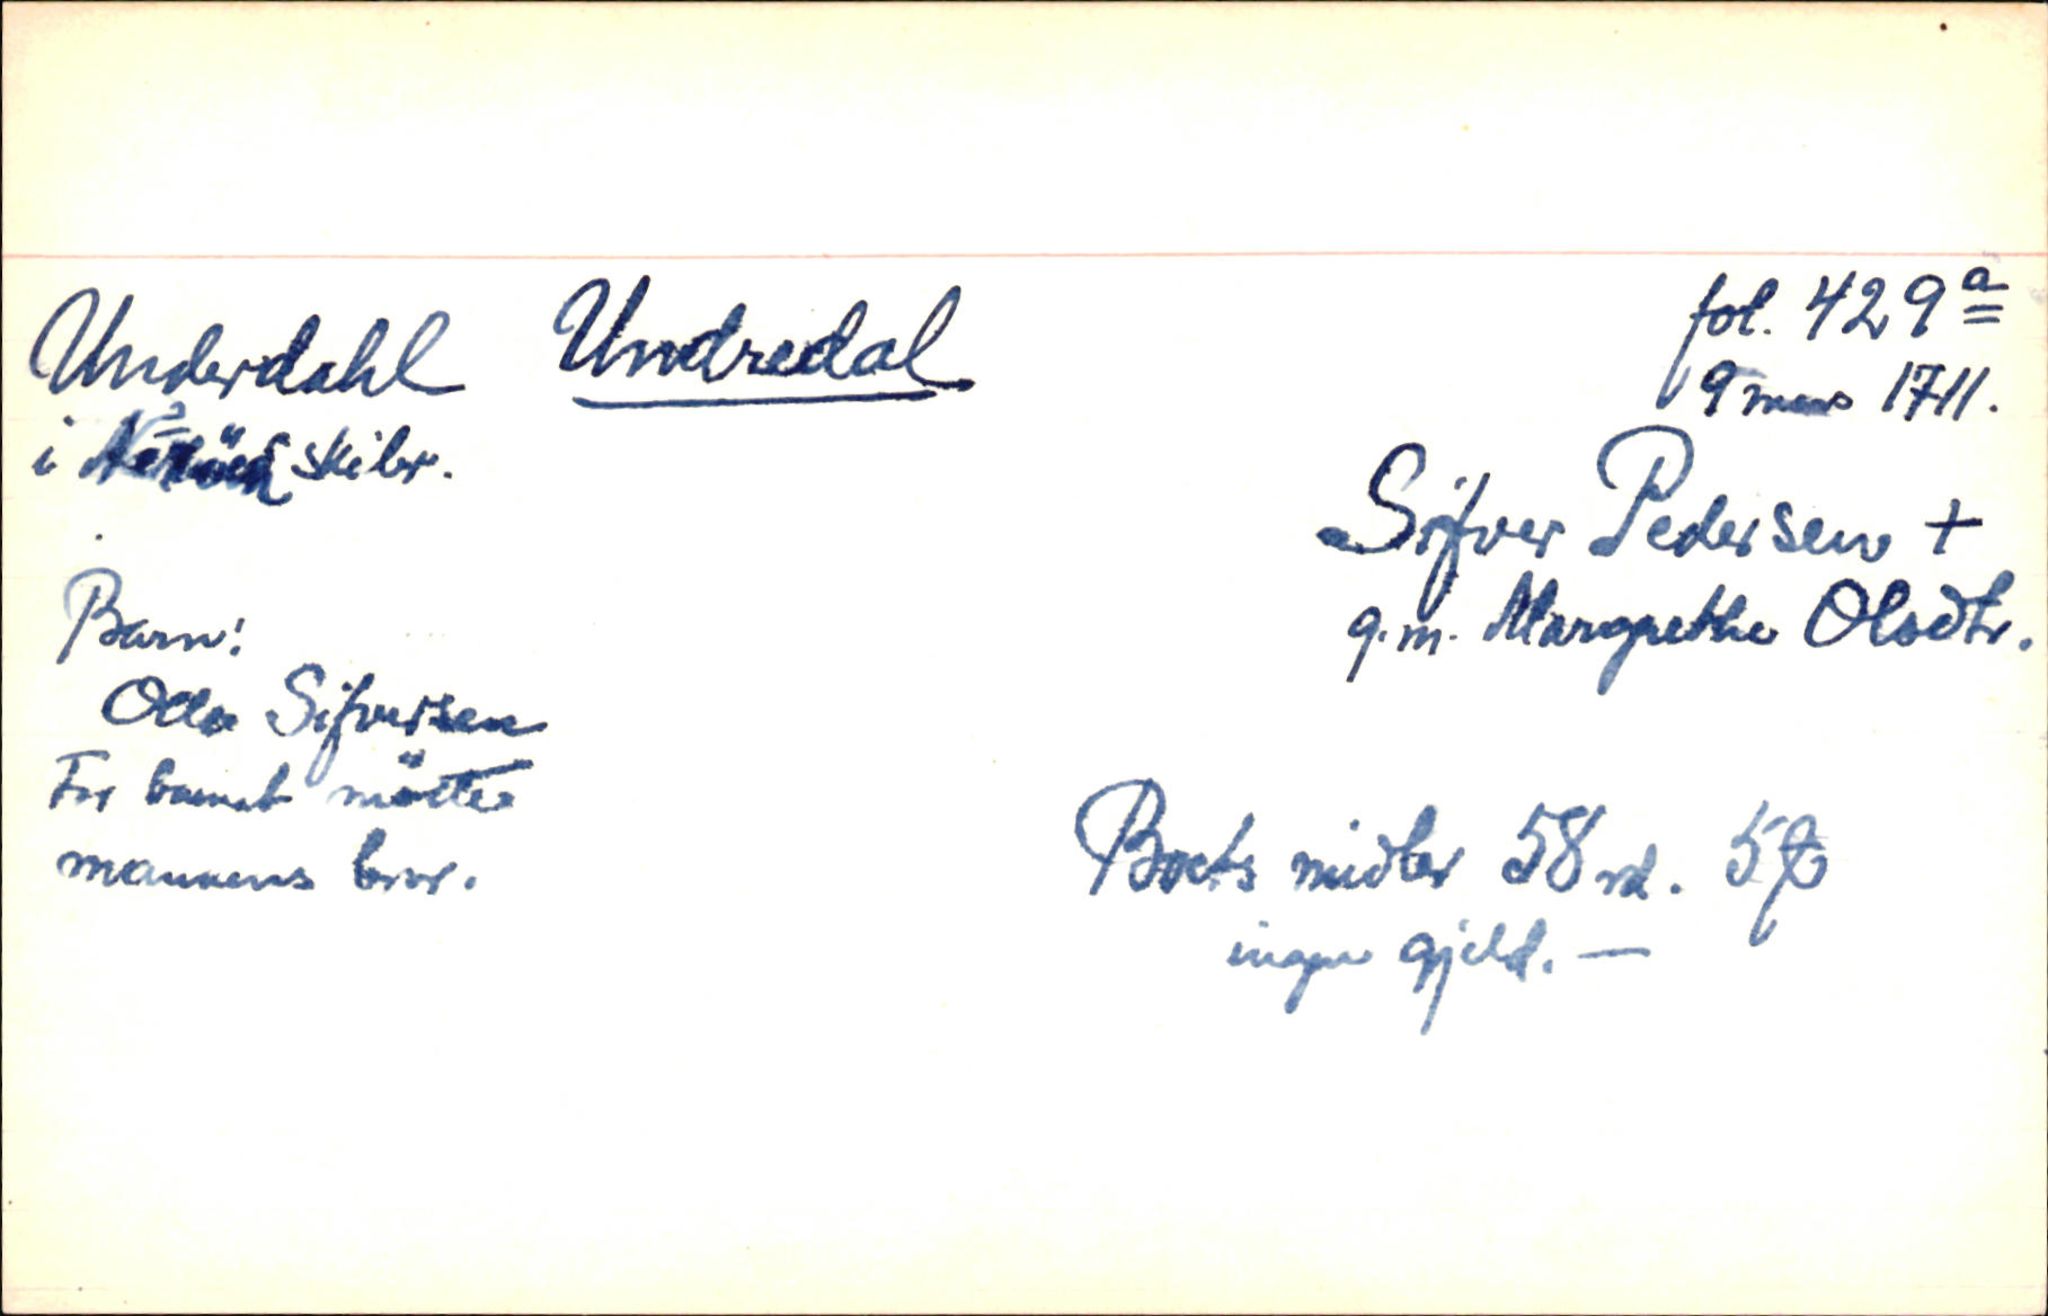 Underdahl Undredal fol. 429a
i skibr. 9 mars 1711.
Sifver Pedersen +
g.m. Margrethe Olsdtr.
Barn:
Olla Sifversen
For barnet mötte
mannens bror.
Boets midler 58 rd. 5
ingen gjeld. —